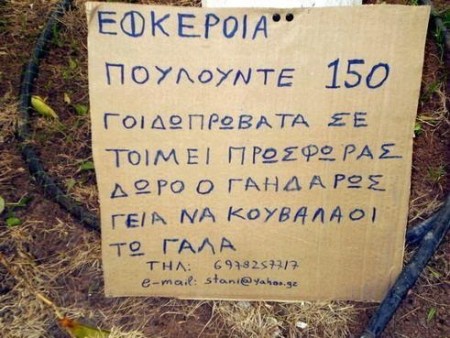 ΕΦΚΕΡΟΙΑ
ΠΟΥΛΟΥΝΤΕ 150
ΓΟΙΔΩΠΡΩΒΑΤΑ ΣΕ
ΤΟΙΜΕΙ ΠΡΩΣΦΩΡΑΣ
ΔΩΡΟ Ο ΓΑΗΔΑΡΩΣ
ΓΕΙΑ ΝΑ ΚΟΥΒΑΛΑΟΙ
ΤΩ ΓΑΛΑ
ΤΗΛ: 6978257717
e-mail: stani@yahoo.gr